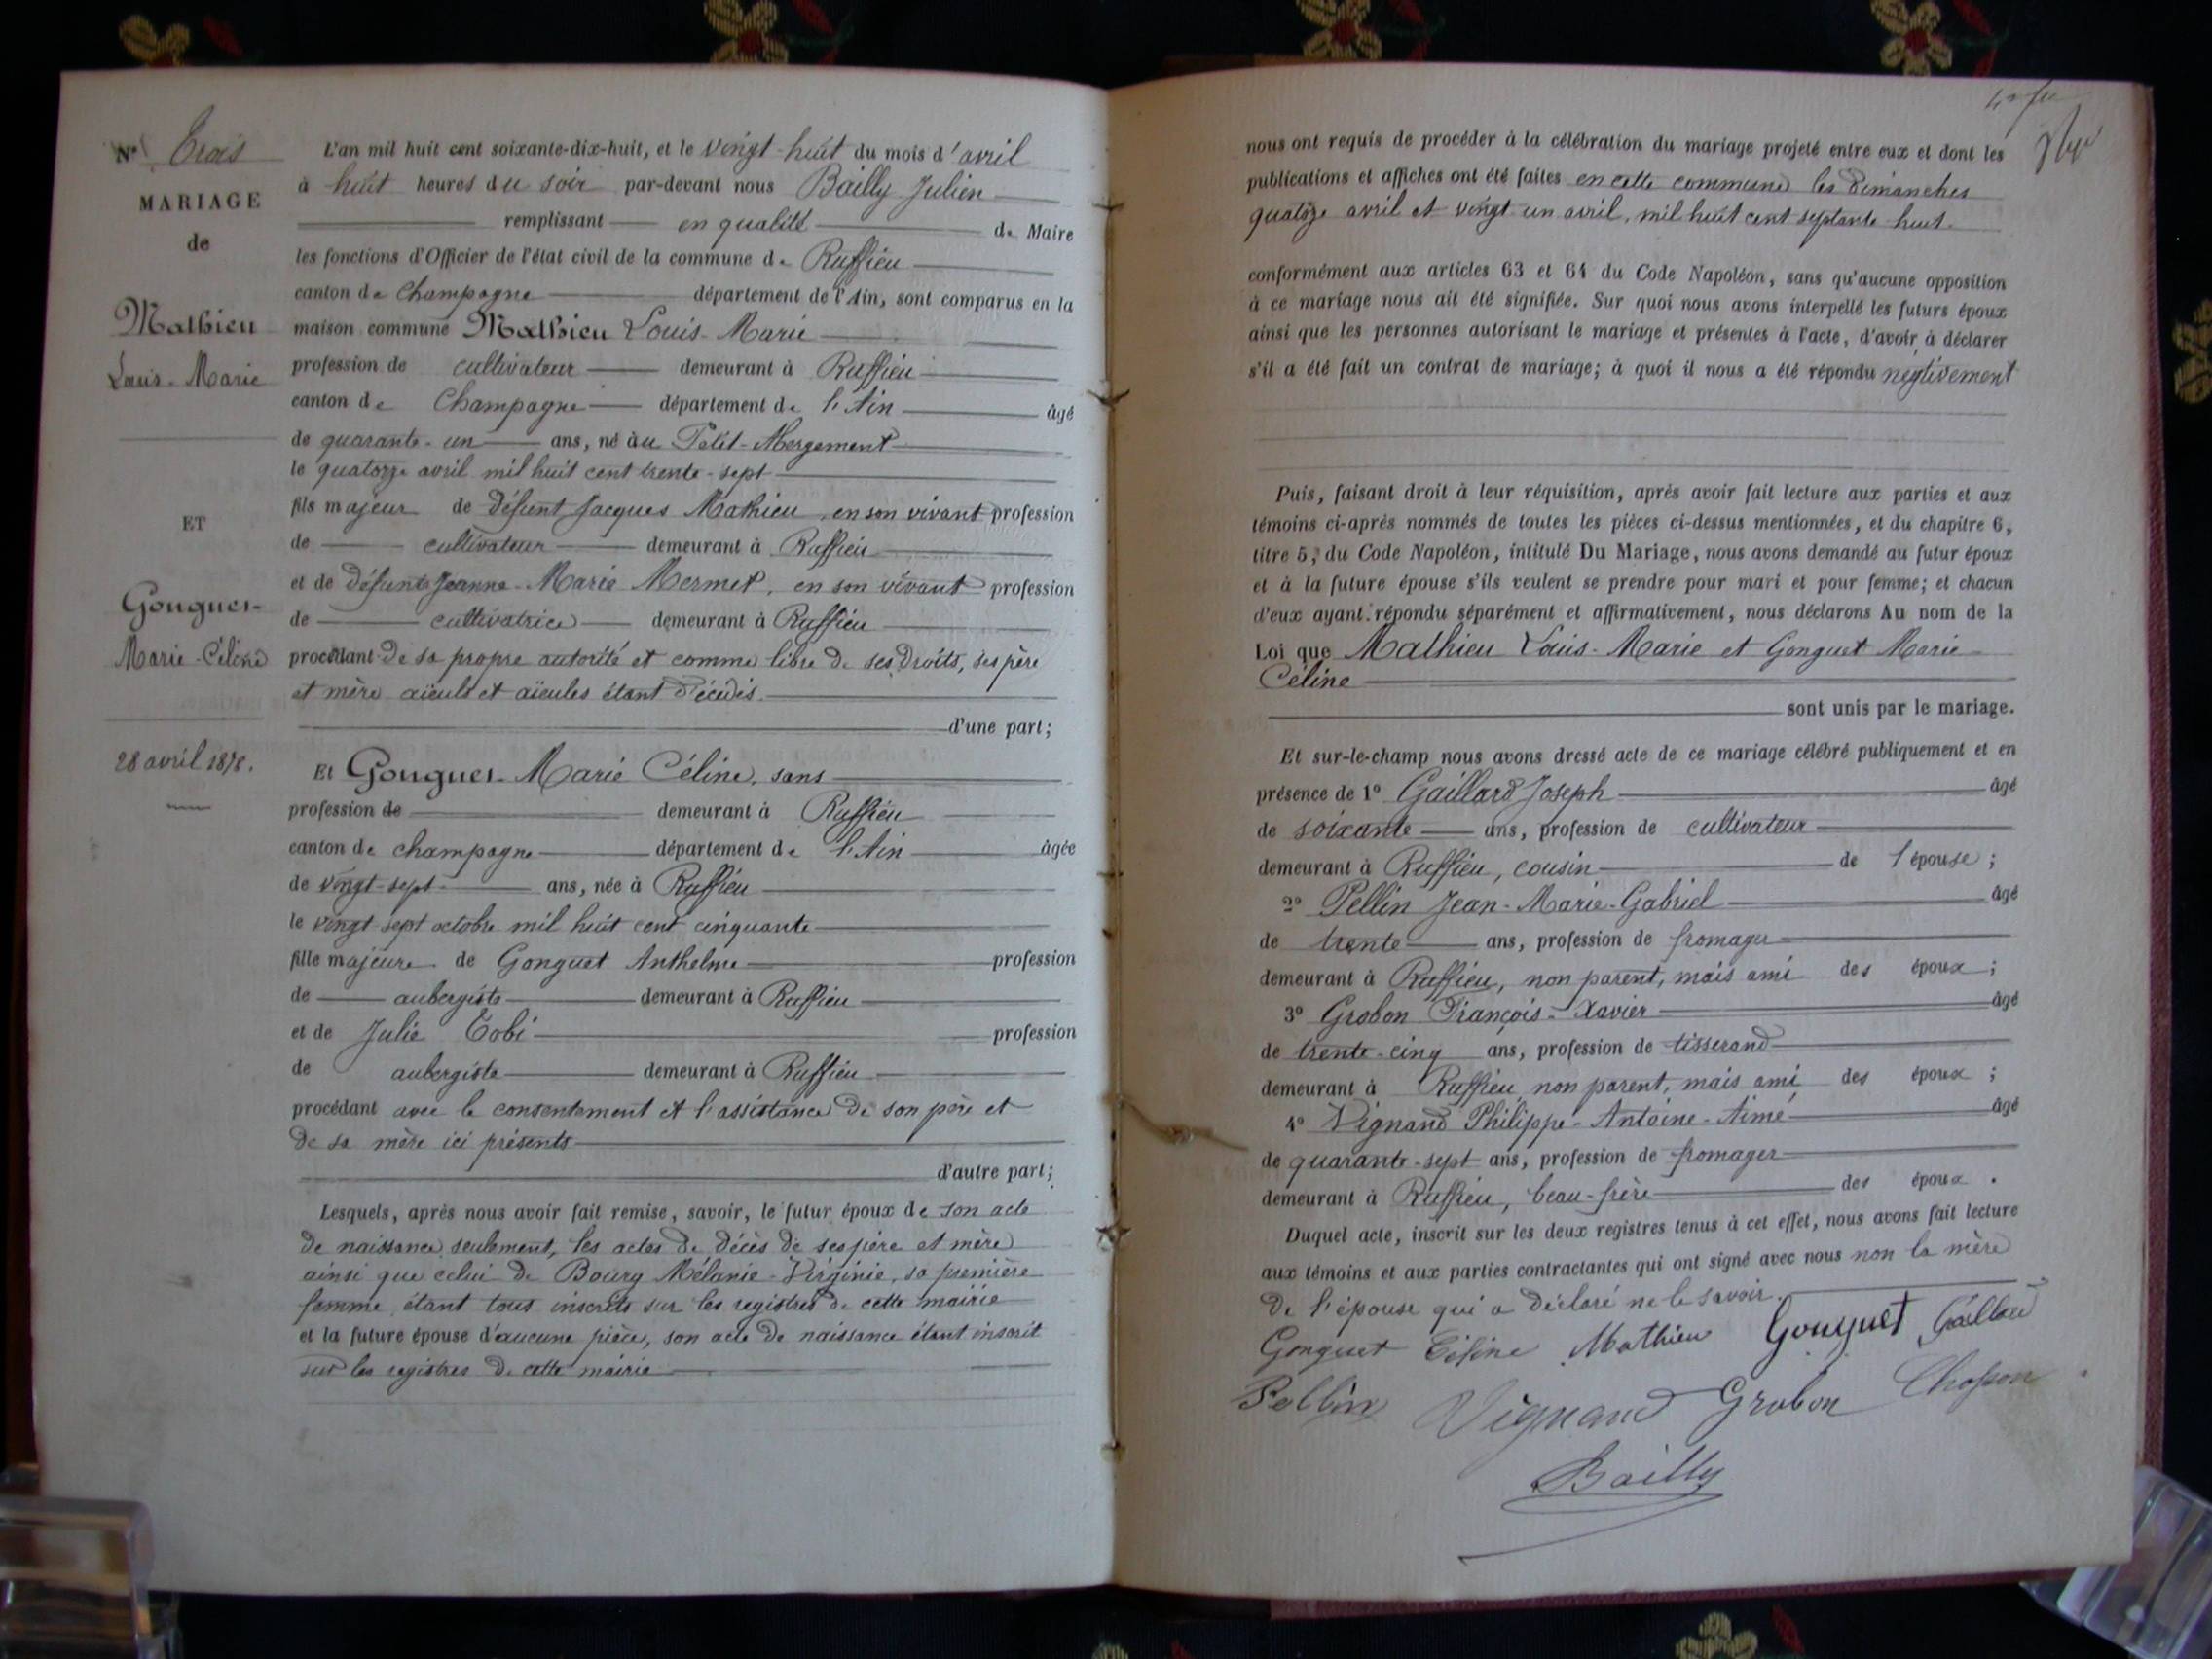 N° Trois
MARIAGE
de
Mathieu
Louis-Marie
ET
Gonguet
Marie-Céline
28 avril 1878.
L'an mil huit cent soixante-dix-huit, et le vingt-huit du mois d'avril
à huit heures du soir par-devant nous Bailly Julien
remplissant en qualité de Maire
les fonctions d'Officier de l'état civil de la commune de Ruffieu
canton de Champagne département de l'Ain, sont comparus en la
maison commune Mathieu Louis-Marie
profession de cultivateur demeurant à Ruffieu
canton de Champagne département de l'Ain âgé
de quarante-un ans, né au Petit-Abergement
le quatorze avril mil huit cent trente-sept
fils majeur de défunt Jacques Mathieu, en son vivant profession
de cultivateur demeurant à Ruffieu
et de défunte Jeanne-Marie Mermet, en son vivant profession
de cultivatrice demeurant à Ruffieu
procédant de sa propre autorité et comme libre de ses droits, ses père
et mère aïeuls et aïeules étant décédés.
d'une part;
Et Gonguet Marie Céline, sans
profession de demeurant à Ruffieu
canton de champagne département de l'Ain âgée
de vingt-sept ans, née à Ruffieu
le vingt-sept octobre mil huit cent cinquante
fille majeure de Gonguet Anthelme profession
de aubergiste demeurant à Ruffieu
et de Julie Tobi profession
de aubergiste demeurant à Ruffieu
procédant avec le consentement et l'assistance de son père et
de sa mère ici présents
d'autre part;
Lesquels, après nous avoir fait remise, savoir, le futur époux de son acte
de naissance seulement, les actes de décès de ses père et mère
ainsi que celui de Bourg Mélanie-Virginie, sa première
femme étant tous inscrits sur les registres de cette mairie
et la future épouse d'aucune pièce, son acte de naissance étant inscrit
sur les registres de cette mairie
nous ont requis de procéder à la célébration du mariage projeté entre eux et dont les
publications et affiches ont été faites en cette commune les dimanches
quatorze avril et vingt un avril, mil huit cent septante huit.
conformément aux articles 63 et 64 du Code Napoléon, sans qu'aucune opposition
à ce mariage nous ait été signifiée. Sur quoi nous avons interpellé les futurs époux
ainsi que les personnes autorisant le mariage et présentes à l'acte, d'avoir à déclarer
s'il a été fait un contrat de mariage; à quoi il nous a été répondu negtivement
Puis, faisant droit à leur réquisition, après avoir fait lecture aux parties et aux
témoins ci-après nommés de toutes les pièces ci-dessus mentionnées, et du chapitre 6,
titre 5, du Code Napoléon, intitulé Du Mariage, nous avons demandé au futur époux
et à la future épouse s'ils veulent se prendre pour mari et pour femme; et chacun
d'eux ayant répondu séparément et affirmativement, nous déclarons Au nom de la
Loi que Mathieu Louis-Marie et Gonguet Marie
Céline
sont unis par le mariage.
Et sur-le-champ nous avons dressé acte de ce mariage célébré publiquement et en
présence de 1° Gaillard Joseph âgé
de soixante ans, profession de cultivateur
demeurant à Ruffieu, cousin de l'épouse;
2° Pellin Jean-Marie-Gabriel âgé
de trente ans, profession de fromager
demeurant à Ruffieu, non parent, mais ami des époux;
3° Grobon François-Xavier âgé
de trente-cinq ans, profession de tisserand
demeurant à Ruffieu, non parent, mais ami des époux;
4° Vignand Philippe-Antoine-Aimé âgé
de quarante-sept ans, profession de fromager
demeurant à Ruffieu, beau-frère des époux.
Duquel acte, inscrit sur les deux registres tenus à cet effet, nous avons fait lecture
aux témoins et aux parties contractantes qui ont signé avec nous non la mère
de l'épouse qui a déclaré ne le savoir.
Gonguet Céline Mathieu Gonguet Gaillard
Pellin Vignand Grobon
Bailly